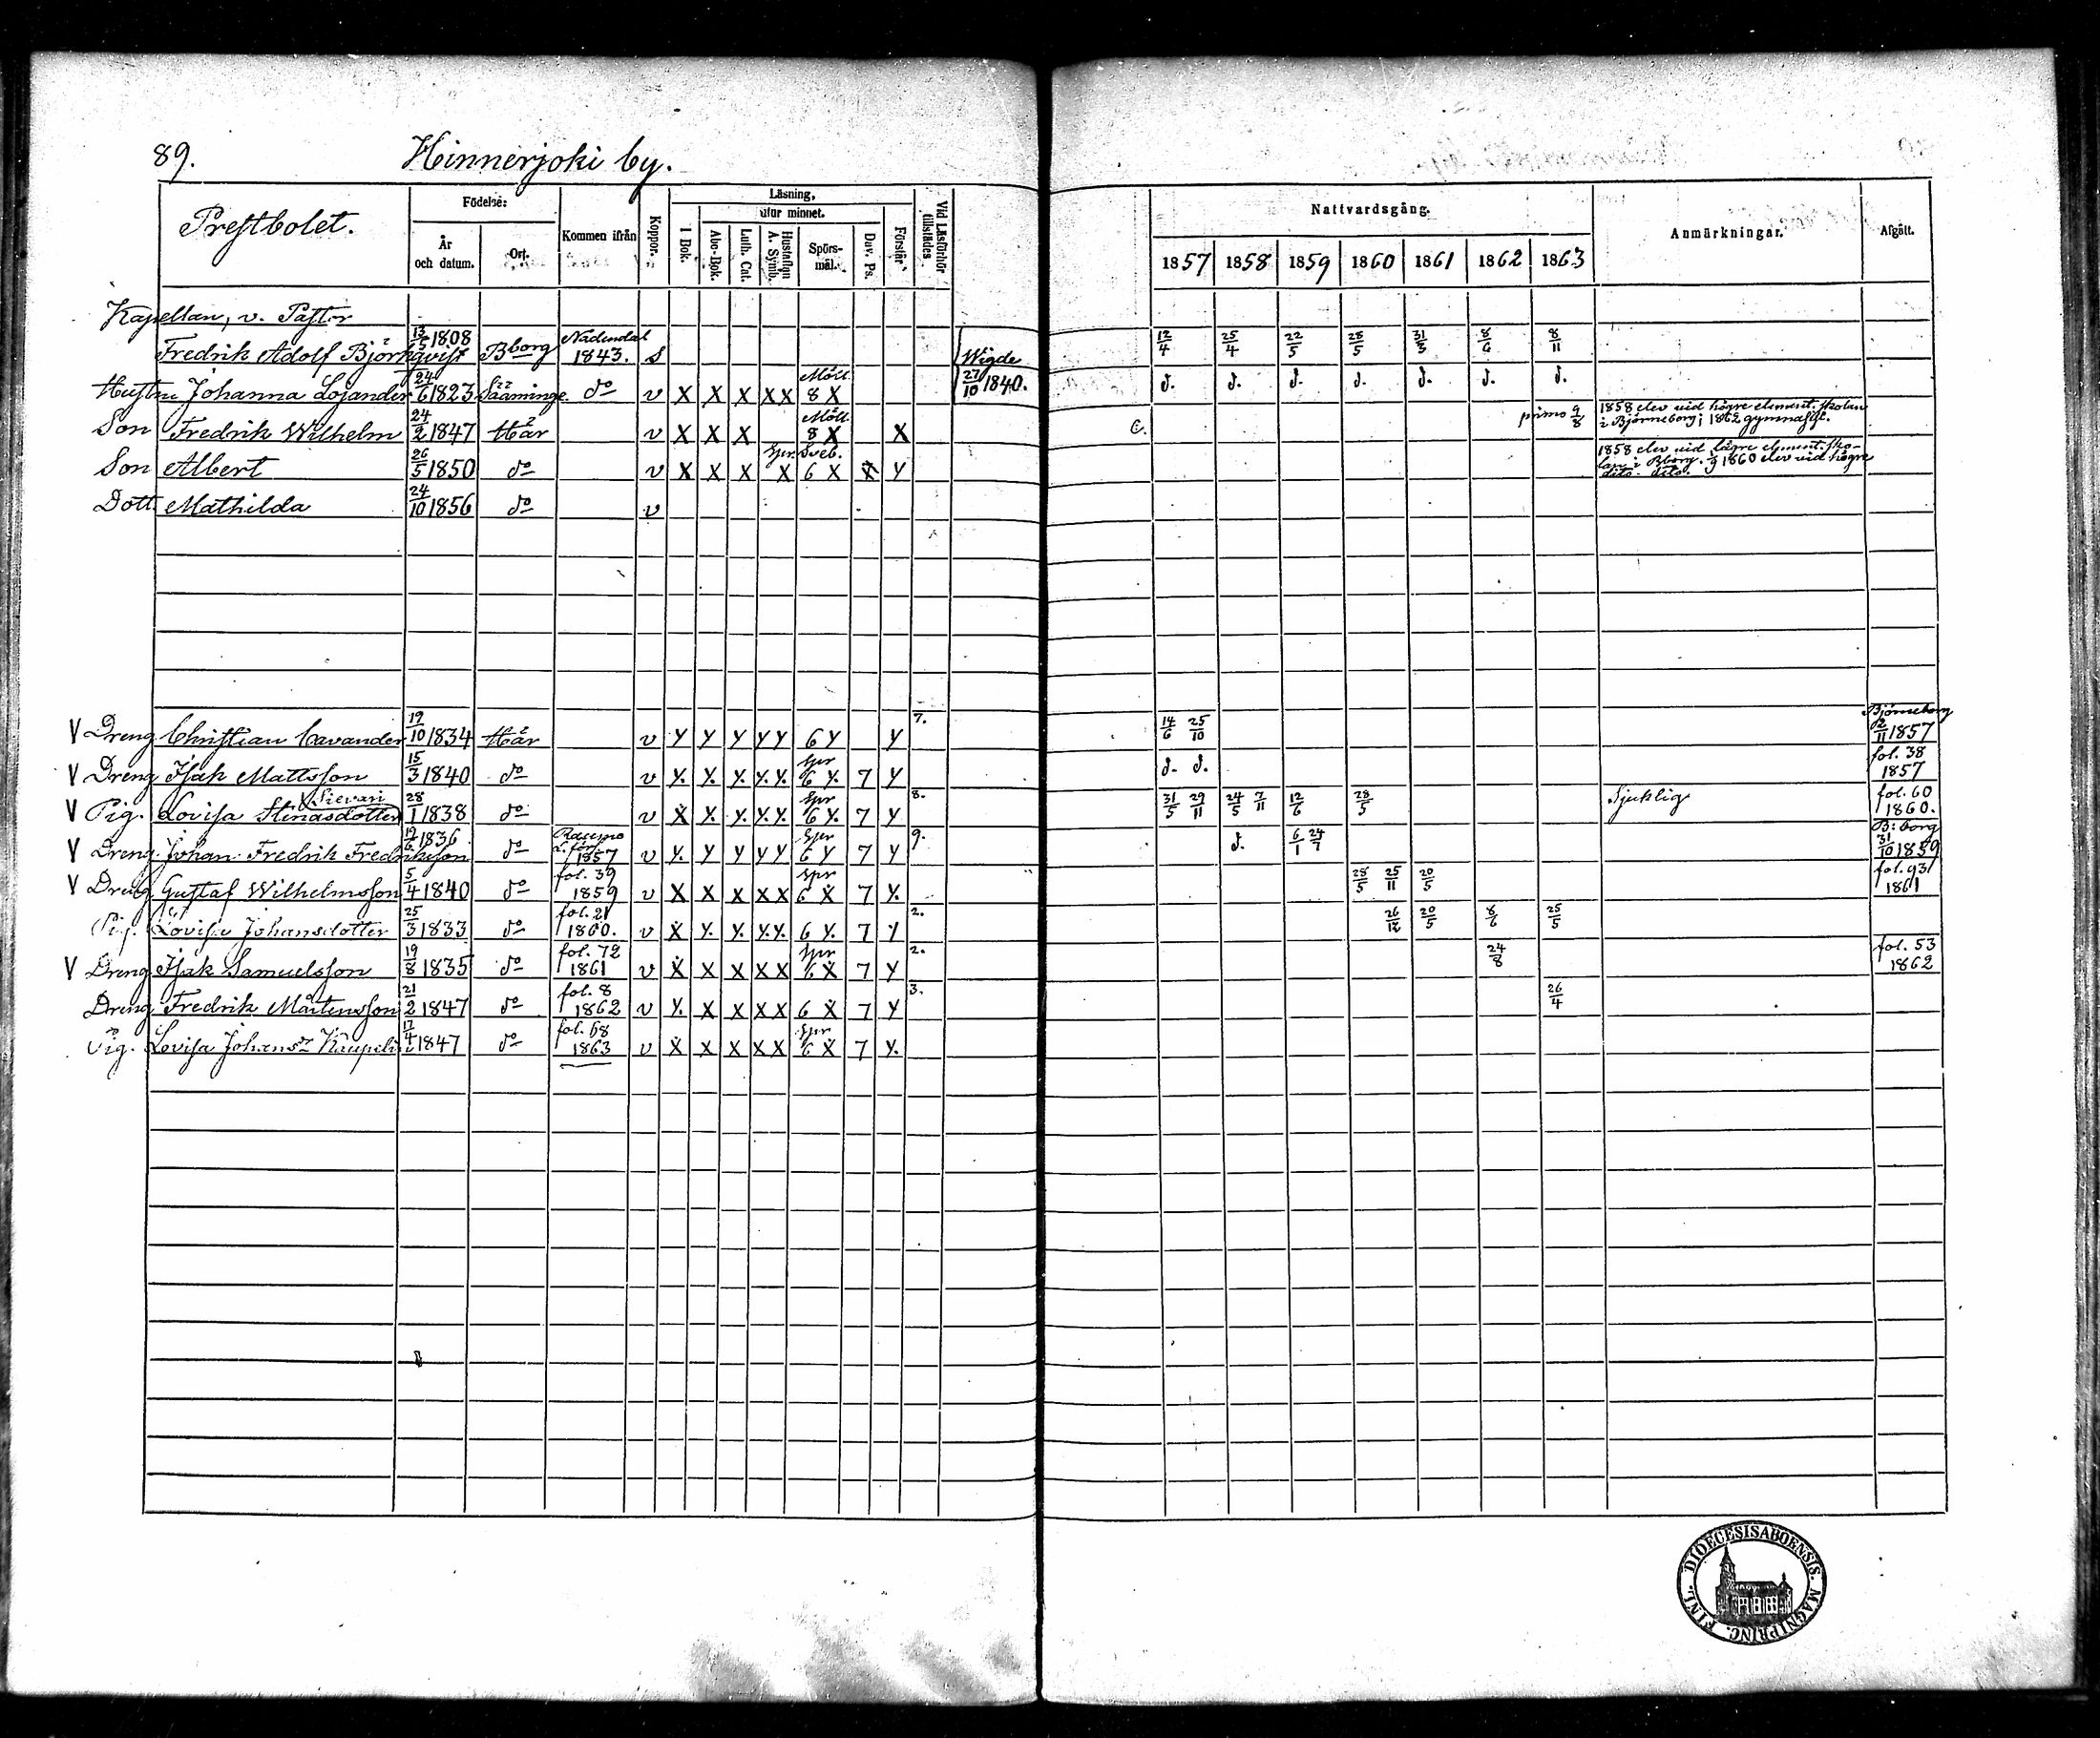 89. Hinnerjoki by.
Prestbolet.
Födelse:
År och datum.
Ort.
Kommen ifrån
Koppor.
Läsning,
utur minnet.
I Bok.
Abc-Bok.
Luth. Cat.
Hustaflan A. Symb.
Spörs-mål.
Dav. Ps.
Förstår
Vid Läsförhör tillstädes
Nattvardsgång.
1857 1858 1859 1860 1861 1862 1863
Anmärkningar.
Afgått.
Kapellan, v. Pastor
Fredrik Adolf Björkqvist 13/5 1808 Bborg Nådendal 1843. s Wigde 27/10 1840. 12/4 25/4 22/5 28/5 31/3 8/6 8/11
Hustru Johanna Lojander 24/6 1823 Sääminge do v X X X X X Möll. 8 X d. d. d. d. d. d. d.
Son Fredrik Wilhelm 24/2 1847 Här v X X X Möll 8 X X C. primo 9/8 1858 elev vid högre element. skolan i Björneborg; 1862 gymnasist.
Son Albert 26/5 1850 do v X X X X Spr. Sveb. 6 X X Y 1858 elev vid lägre element. skolan i Bborg. 1/9 1860 elev vid högre dito dito.
Dott. Mathilda 24/10 1856 do v
V Dreng Christian Cavander 19/10 1834 Här v Y Y Y Y Y 6 Y Y 7. 14/6 25/10 Björneborg 2/11 1857
V Dreng Isak Mattsson 15/3 1840 do v Y. X. Y. Y. Y. Spr 6 Y. 7 Y d. d. fol. 38 1857
V Pig. Lovisa Stinasdotter Sievari 28/1 1838 do v X Y. Y. Y. Y. Spr 6 Y. 7 Y 8. 31/5 29/11 24/5 7/11 12/6 28/5 Sjuklig fol. 60 1860.
V Dreng Johan Fredrik Fredriksson 19/6 1836 do Raumo 1857 v Y. Y Y Y Y Spr 6 Y 7 Y 9. d. 6/1 24/7 B:borg 31/10 1859
V Dreng Gustaf Wilhelmsson 5/4 1840 do fol. 39 1859 v X X X X X Spr 6 X 7 Y. 28/5 25/11 20/5 fol. 93 1861
Pig. Lovisa Johansdotter 25/3 1833 do fol. 21 1860. v X Y. Y. Y. Y. 6 Y. 7 Y 2. 26/12 20/5 8/6 25/5
V Dreng Isak Samuelsson 19/8 1835 do fol. 72 1861 v X X X X X Spr 6 X 7 Y 2. 24/8 fol. 53 1862
Dreng Fredrik Mårtensson 21/2 1847 do fol. 8 1862 v Y. X X X X 6 X 7 Y 3. 26/4
Pig. Lovisa Johansdr Kaupelin 17/4 1847 do fol. 68 1863 v X X X X X Spr 6 X 7 Y.
DIOECESIS ABOENSIS. MAGNI PRINC. FINL.